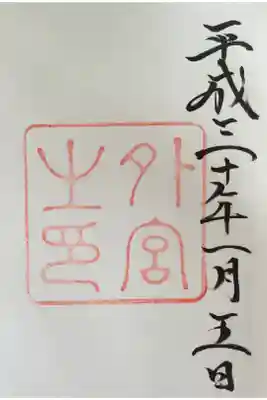 平成二十年一月五日
外宮
之印